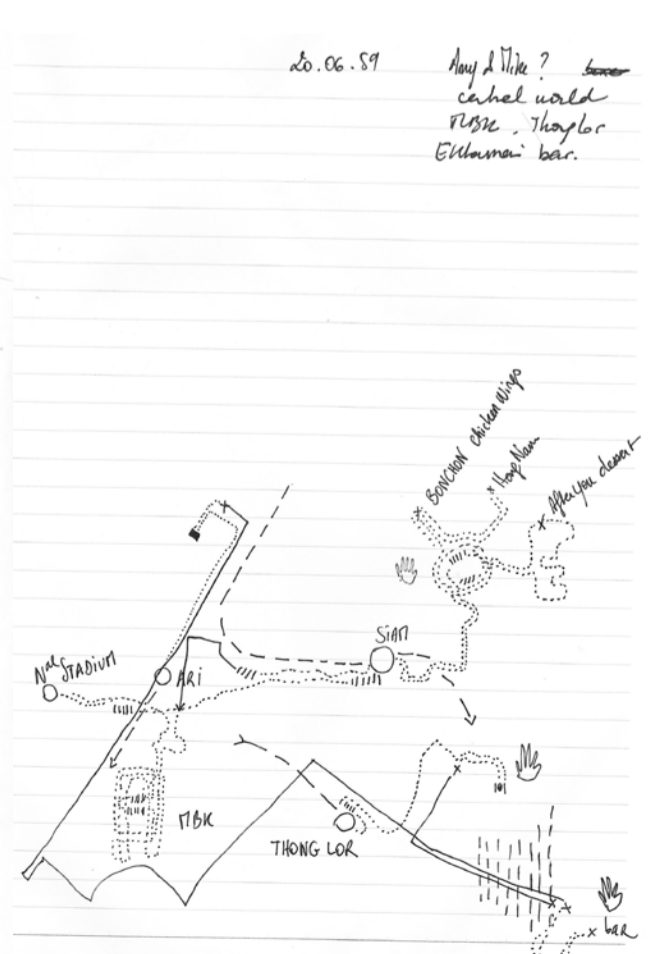 20.06.59
Amy & Mike ?
central world
MBK . Thonglor
Ekkamai bar.
BONCHON chicken wings
Hong Nam
After you dessert
SiAM
Nal STADiUM
ARi
MBK
THONG LOR
bar